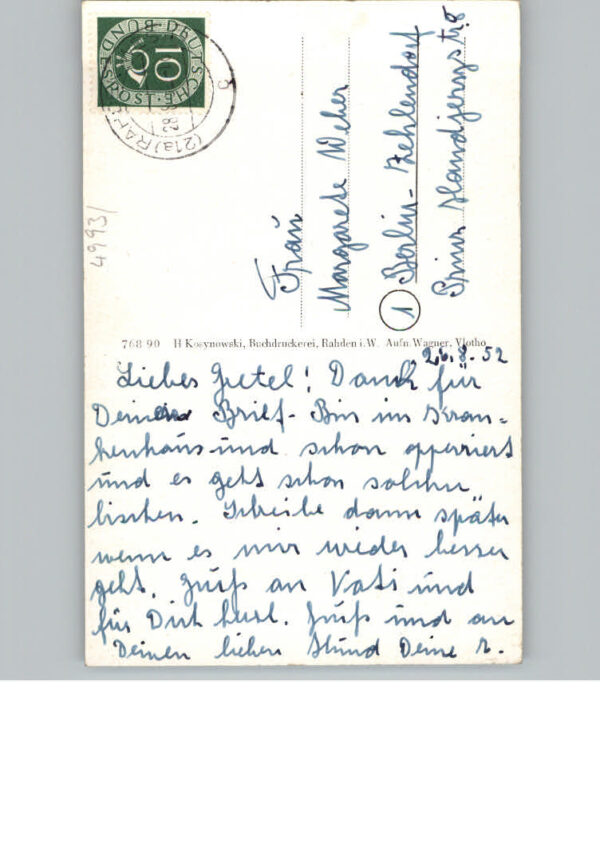 DEUTSCHE BUNDESPOST
10
(21a) RAH
4993/
Frau
Margarete Weber
1 Berlin-Zehlendorf
Prinz Handjerystr. 8
768 90 H Kosynowski, Buchdruckerei, Rahden i.W. Aufn. Wagner, Vlotho
26.8.52
Liebes Gretel! Dank für
Deinen Brief. Bin im Kran=
kenhaus und schon opperiert
und es geht schon
bischen. Schreibe dann später
wenn es mir wieder besser
geht. Gruß an Vati und
für Dich herzl. Gruß und an
Deinen lieben Hund Deine R.